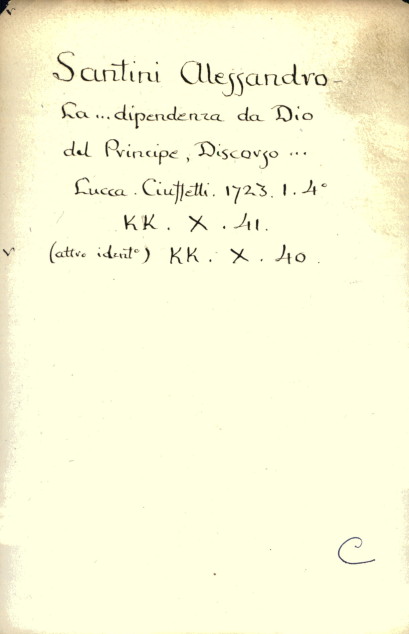 Santini Alessandro -
La ... dipendenza da Dio
del Principe, Discorso ...
Lucca. Ciuffetti. 1723. 1. 4°
KK. X. 41.
(altro ident°) KK. X. 40.
C